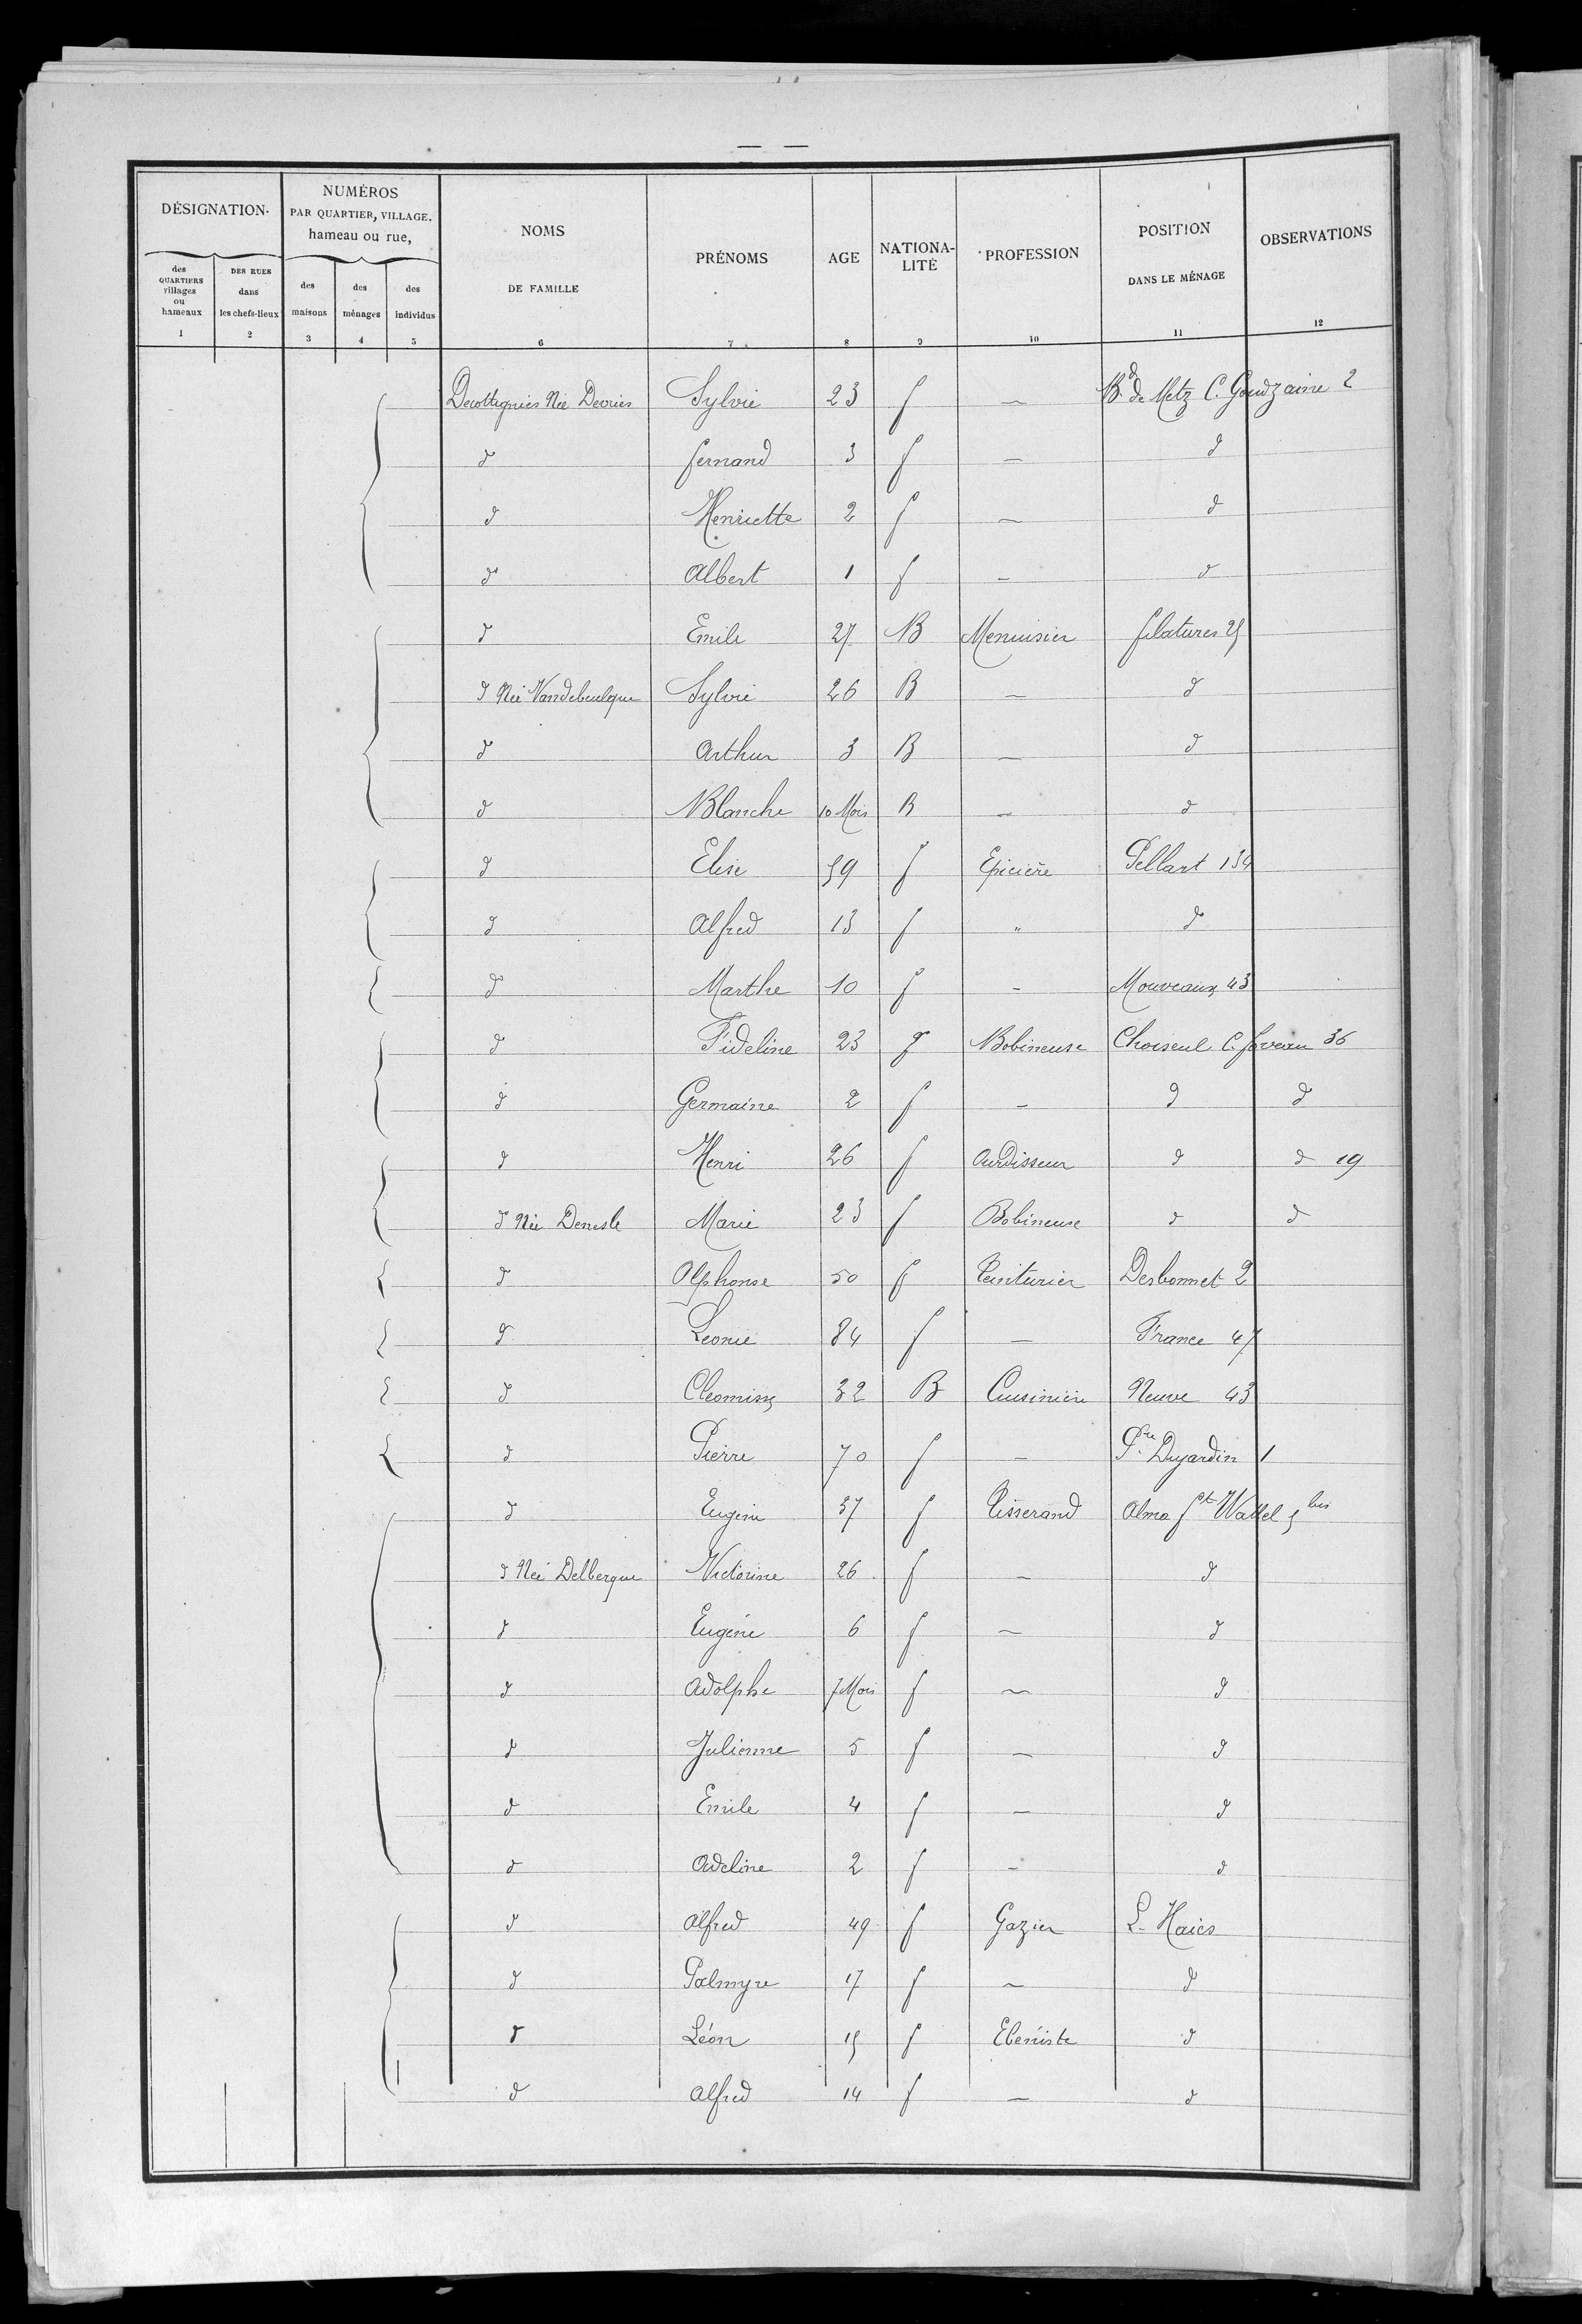 DÉSIGNATION NUMÉROS PAR QUARTIER, VILLAGE, hameau ou rue, NOMS DE FAMILLE PRÉNOMS AGE NATIONALITÉ PROFESSION POSITION DANS LE MÉNAGE OBSERVATIONS
des QUARTIERS villages ou hameaux DES RUES dans les chefs-lieux des maisons des ménages des individus
1 2 3 4 5 6 7 8 9 10 11 12
Decottignies Née Devries Sylvie 23 f — Bd de Metz C. 2
d fernand 3 f — d
d Henriette 2 f — d
d Albert 1 f — d
d Emile 27 B Menuisier filatures 25
d Née Vandebeulque Sylvie 26 B — d
d Arthur 3 B — d
d Blanche 10 Mois B — d
d Elise 59 f Epicière Pellart 134
d Alfred 13 f " d
d Marthe 10 f - Mouveaux 43
d Fideline 23 f Bobineuse Choiseul C. 36
d Germaine 2 f - d d
d Henri 26 f Ourdisseur d d 19
d Née Denesle Marie 23 f Bobineuse d d
d Alphonse 50 f Teinturier Desbonnet 2
d Leonie 84 f — France 47
d 32 B Cuisinière Neuve 43
d Pierre 70 f — Dujardin 1
d Eugène 37 f Tisserand Alma ft Wattel 5 bis
d Née Delbergue Victorine 26 f — d
d Eugénie 6 f — d
d Adolphe 7 Mois f — d
d Julienne 5 f — d
d Emile 4 f — d
d Adeline 2 f - d
d Alfred 49 f Gazier L. Haies
d Palmyre 17 f — d
d Léon 15 f Ebéniste d
d Alfred 14 f — d